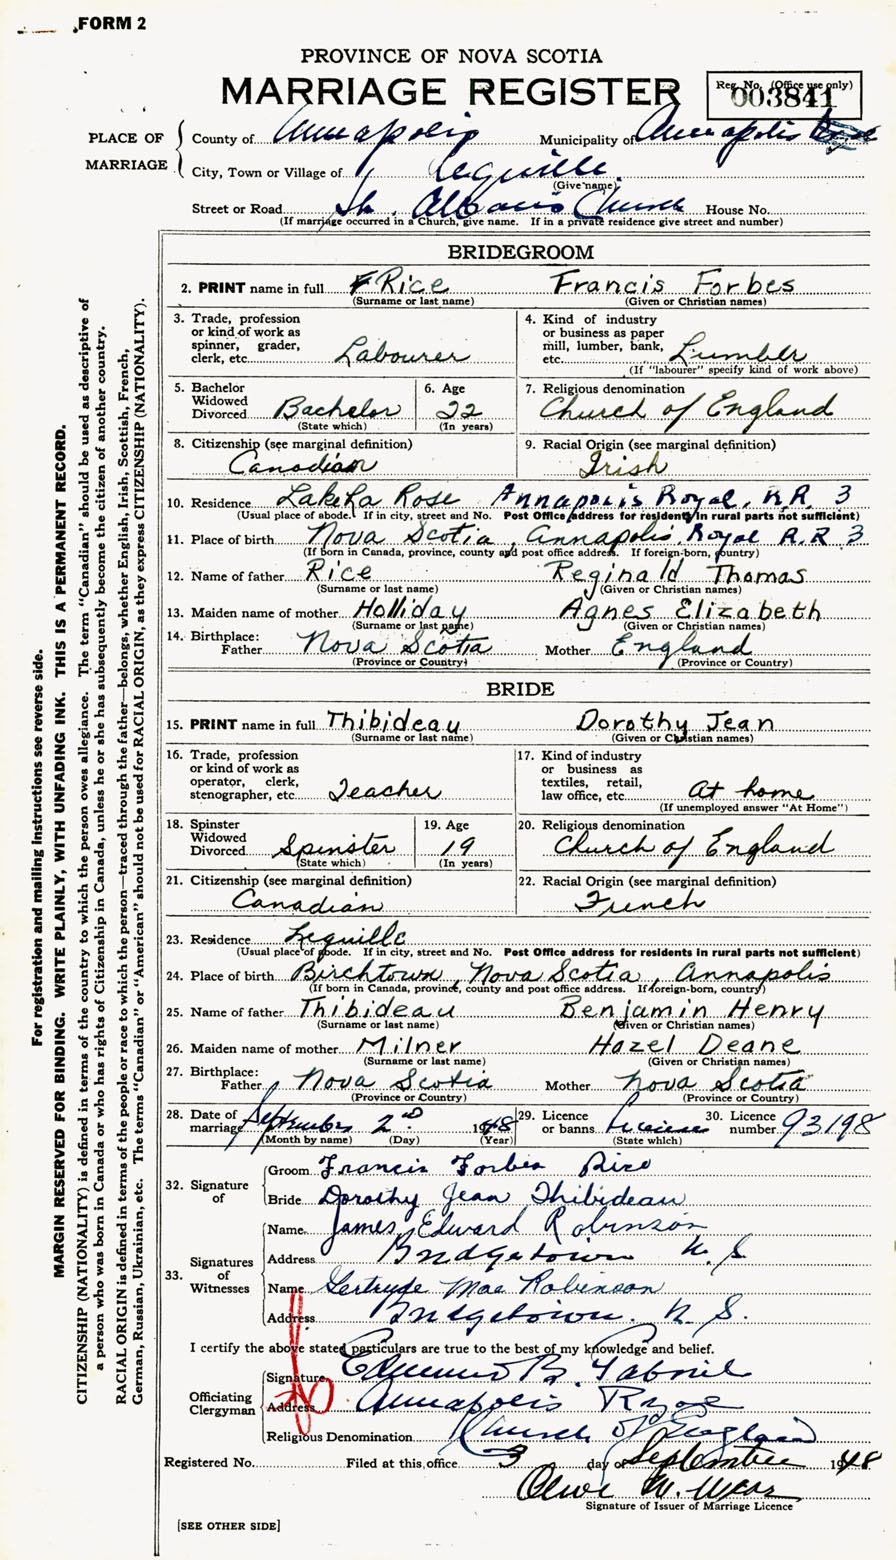 FORM 2
PROVINCE OF NOVA SCOTIA
MARRIAGE REGISTER
Reg. No. (Office use only)
003841
PLACE OF MARRIAGE
County of Annapolis Municipality of Annapolis
City, Town or Village of Lequille
(Give name)
Street or Road St. Albans Church House No.
(If marriage occurred in a Church, give name. If in a private residence give street and number)
BRIDEGROOM
2. PRINT name in full Rice Francis Forbes
(Surname or last name) (Given or Christian names)
3. Trade, profession or kind of work as spinner, grader, clerk, etc. Labourer
4. Kind of industry or business as paper mill, lumber, bank, etc. Lumber
(If "labourer" specify kind of work above)
5. Bachelor Widowed Divorced Bachelor
(State which)
6. Age 22
(In years)
7. Religious denomination
Church of England
8. Citizenship (see marginal definition)
Canadian
9. Racial Origin (see marginal definition)
Irish
10. Residence Lake La Rose Annapolis Royal, R.R. 3
(Usual place of abode. If in city, street and No. Post Office address for residents in rural parts not sufficient)
11. Place of birth Nova Scotia, Annapolis Royal R.R. 3
(If born in Canada, province, county and post office address. If foreign-born, country)
12. Name of father Rice Reginald Thomas
(Surname or last name) (Given or Christian names)
13. Maiden name of mother Holliday Agnes Elizabeth
(Surname or last name) (Given or Christian names)
14. Birthplace:
Father Nova Scotia Mother England
(Province or Country) (Province or Country)
BRIDE
15. PRINT name in full Thibideau Dorothy Jean
(Surname or last name) (Given or Christian names)
16. Trade, profession or kind of work as operator, clerk, stenographer, etc. Teacher
17. Kind of industry or business as textiles, retail, law office, etc. At home
(If unemployed answer "At Home")
18. Spinster Widowed Divorced Spinster
(State which)
19. Age 19
(In years)
20. Religious denomination
Church of England
21. Citizenship (see marginal definition)
Canadian
22. Racial Origin (see marginal definition)
French
23. Residence Lequille
(Usual place of abode. If in city, street and No. Post Office address for residents in rural parts not sufficient)
24. Place of birth Birchtown, Nova Scotia, Annapolis
(If born in Canada, province, county and post office address. If foreign-born, country)
25. Name of father Thibideau Benjamin Henry
(Surname or last name) (Given or Christian names)
26. Maiden name of mother Milner Hazel Deane
(Surname or last name) (Given or Christian names)
27. Birthplace:
Father Nova Scotia Mother Nova Scotia
(Province or Country) (Province or Country)
28. Date of marriage September 2nd 1948
(Month by name) (Day) (Year)
29. Licence or banns License
(State which)
30. Licence number 93198
32. Signature of
Groom Francis Forbes Rice
Bride Dorothy Jean Thibideau
33. Signatures of Witnesses
Name James Edward Robinson
Address Bridgetown N. S
Name Gertrude Mae Robinson
Address Bridgetown. N. S.
I certify the above stated particulars are true to the best of my knowledge and belief.
Officiating Clergyman
Signature Edmund B. Gabriel
Address Annapolis Royal
Religious Denomination Church of England
Registered No. Filed at this office 3 day of September 1948
Olive M.
Signature of Issuer of Marriage Licence
[SEE OTHER SIDE]
For registration and mailing instructions see reverse side.
MARGIN RESERVED FOR BINDING. WRITE PLAINLY, WITH UNFADING INK. THIS IS A PERMANENT RECORD.
CITIZENSHIP (NATIONALITY) is defined in terms of the country to which the person owes allegiance. The term "Canadian" should be used as descriptive of
a person who was born in Canada or who has rights of Citizenship in Canada, unless he or she has subsequently become the citizen of another country.
RACIAL ORIGIN is defined in terms of the people or race to which the person—traced through the father—belongs, whether English, Irish, Scottish, French,
German, Russian, Ukrainian, etc. The terms "Canadian" or "American" should not be used for RACIAL ORIGIN, as they express CITIZENSHIP (NATIONALITY).